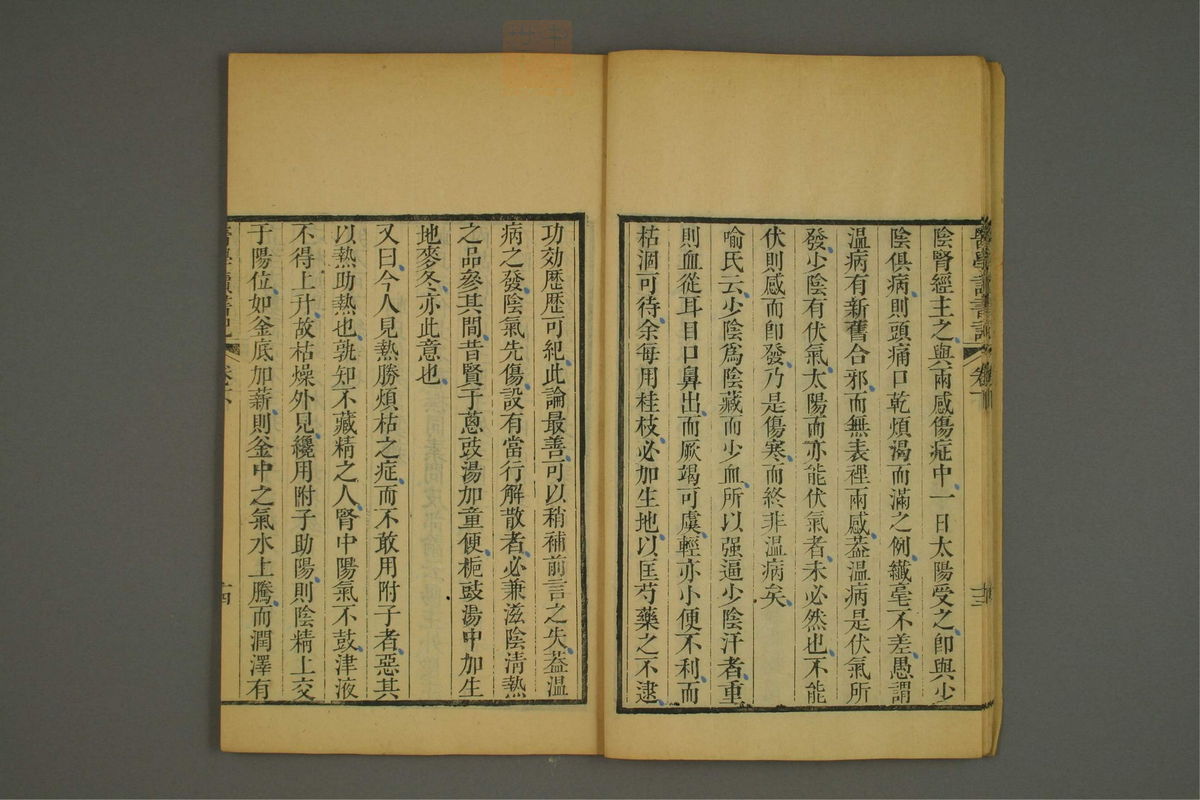 陰腎經主之與兩感傷症中一日太陽受之卽與少
陰俱病則頭痛口乾煩渴而滿之例纖毫不差愚謂
溫病有新舊合邪而無表裡兩感葢溫病是伏氣所
發少陰有伏氣太陽而亦能伏氣者未必然也不能
伏則感而卽發乃是傷寒而終非溫病矣
喻氏云少陰爲陰藏而少血所以强逼少陰汗者重
則血從耳目口鼻出而厥竭可虞輕亦小便不利而
枯涸可待余每用桂枝必加生地以匡芍藥之不逮
功効歷歷可紀此論最善可以稍補前言之失葢溫
病之發陰氣先傷設有當行解散者必兼滋陰淸熱
之品參其間昔賢于蔥豉湯加童便梔豉湯中加生
地麥冬亦此意也
又曰今人見熱勝煩枯之症而不敢用附子者惡其
以熱助熱也孰知不藏精之人腎中陽氣不鼓津液
不得上升故枯燥外見纔用附子助陽則陰精上交
于陽位如釜底加薪則釜中之氣水上騰而潤澤有